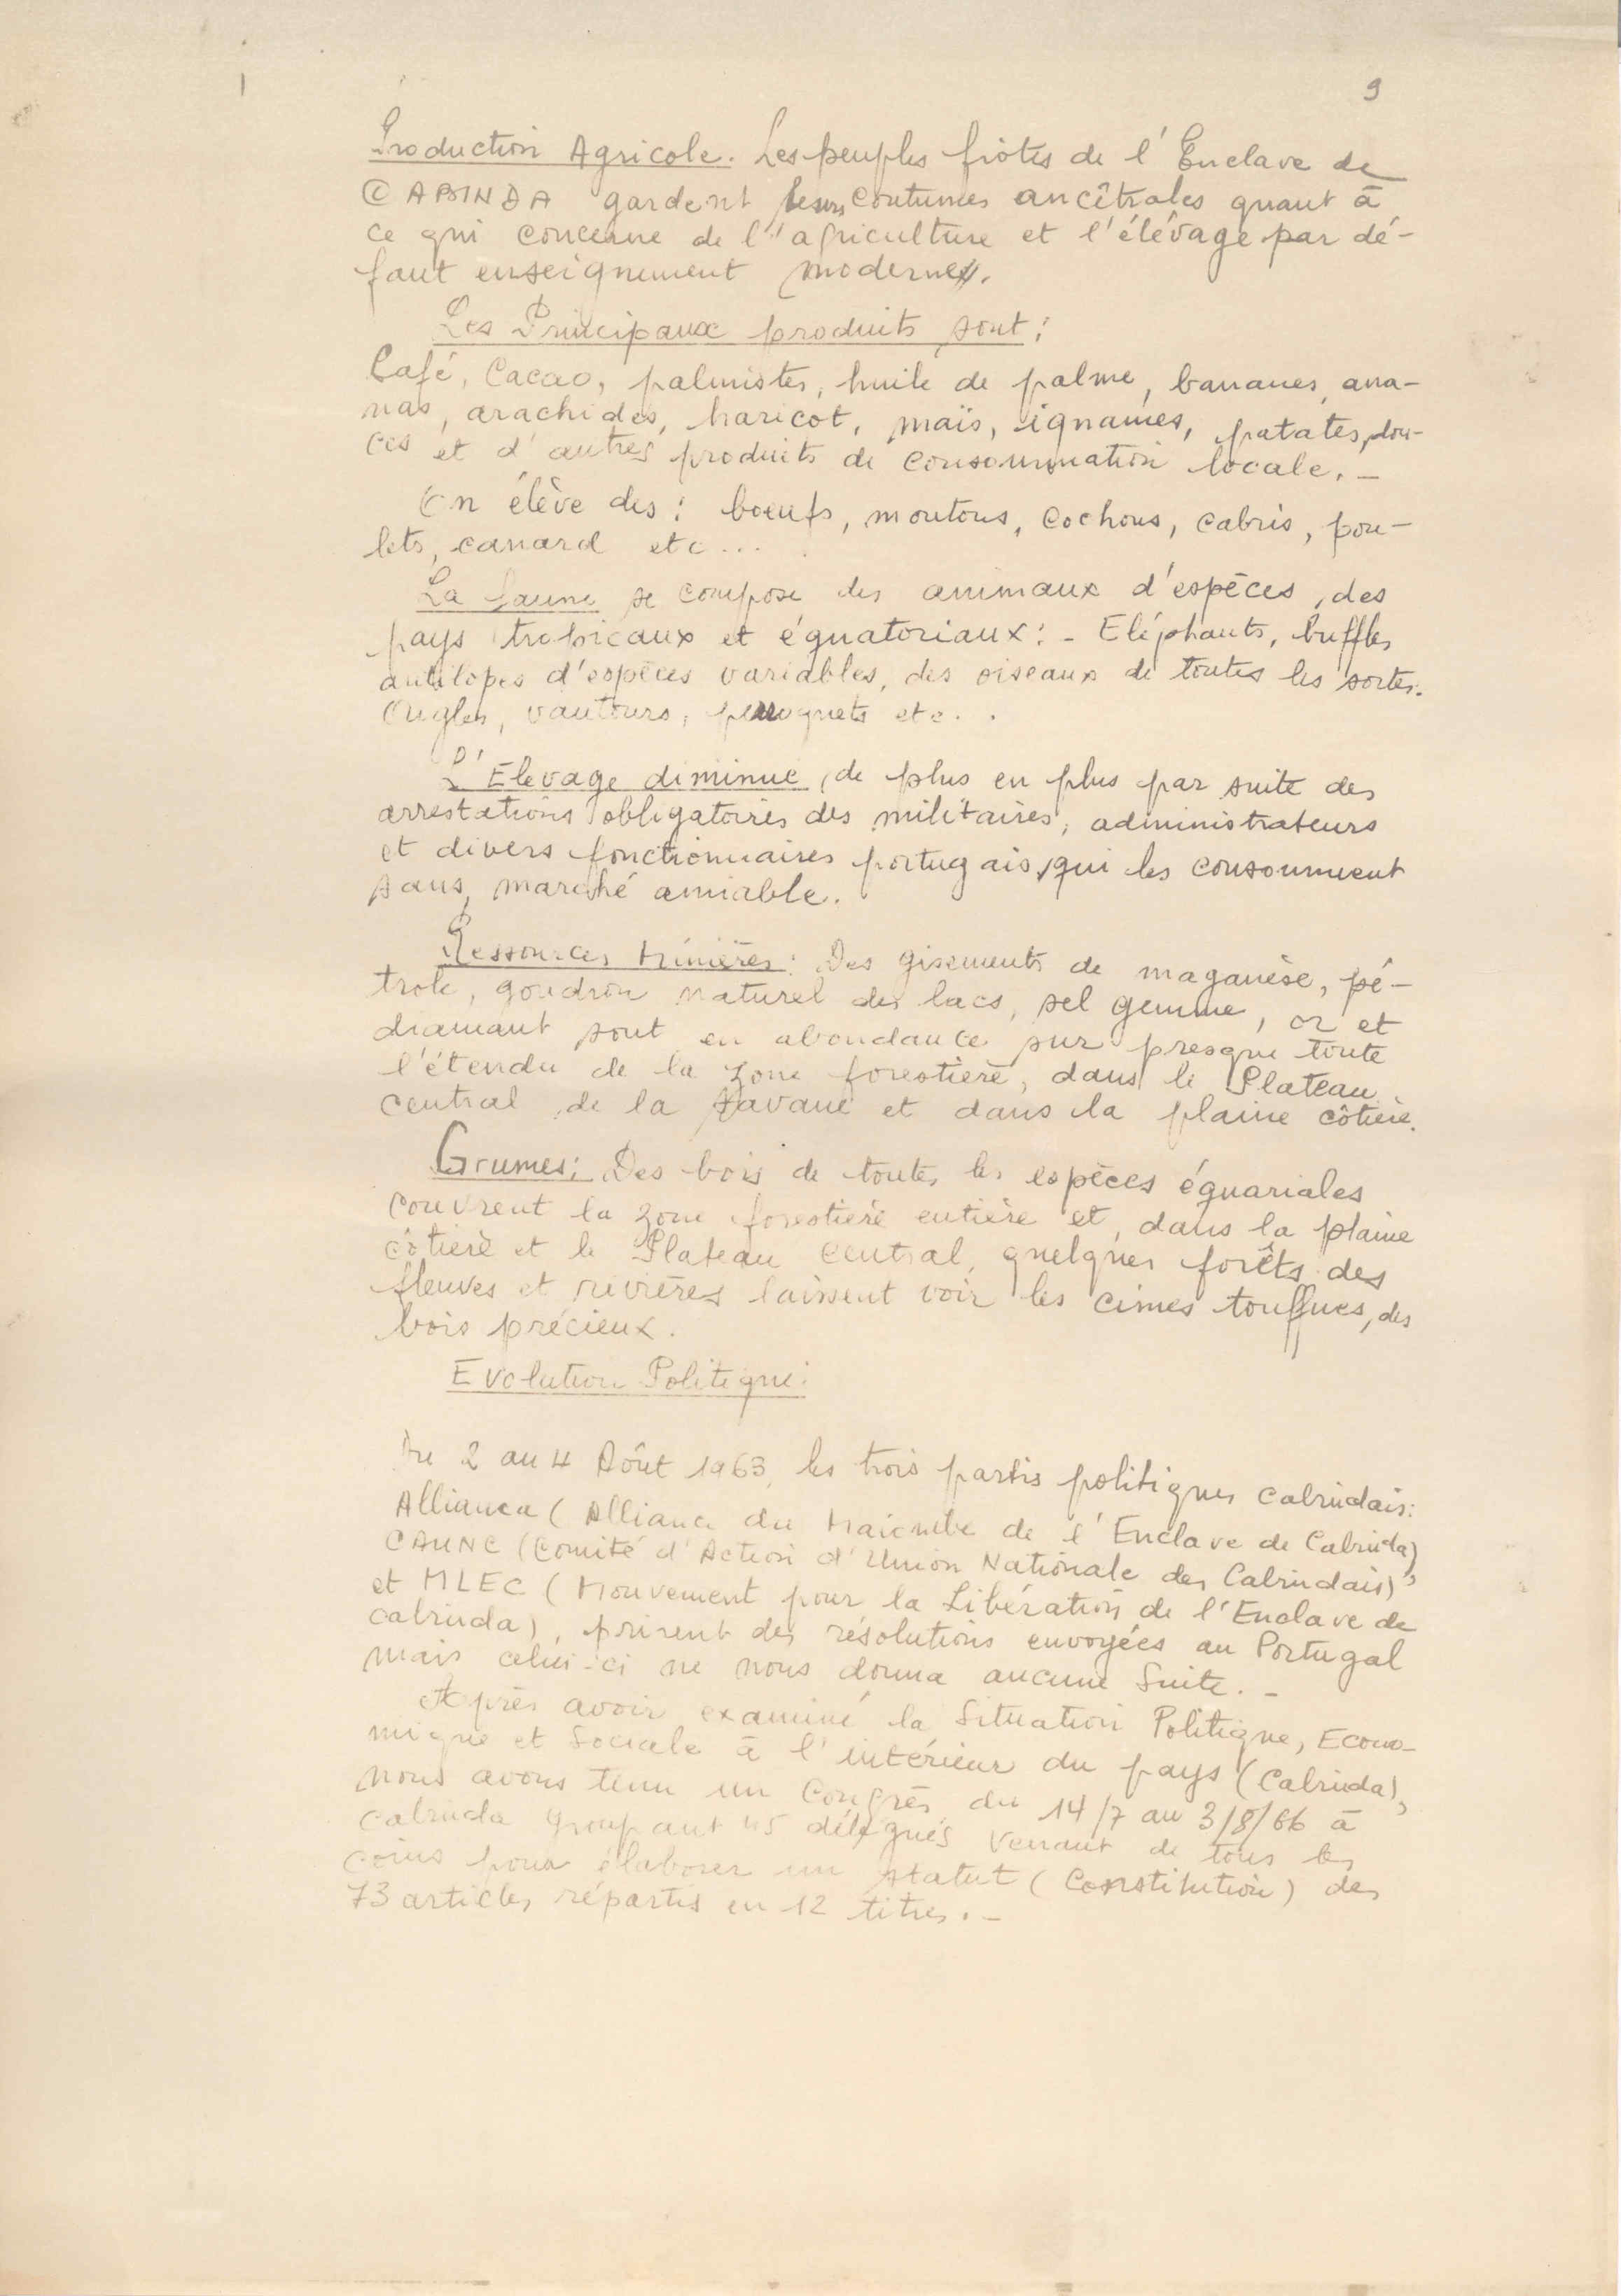 9
Production Agricole. Les peuples fiotes de l'Enclave de
CABINDA gardent leurs coutumes ancêtrales quant à
ce qui concerne de l'agriculture et l'élévage par dé-
faut enseignement moderne.
Les Principaux produits sont :
Café, Cacao, palmistes, huile de palme, bananes, ana-
nas, arachides, haricot, maïs, ignames, patates, dou-
ces et d'autres produits de consommation locale. -
On élève des : boeufs, moutons, cochons, cabris, pou-
lets, canard etc...
La faune se compose des animaux d'espèces, des
pays tropicaux et équatoriaux : - Eléphants, buffles
antilopes d'espèces variables, des oiseaux de toutes les sortes.
vautours, perroquets etc..
L'Elevage diminue, de plus en plus par suite des
arrestations obligatoires des militaires, administrateurs
et divers fonctionnaires portugais, qui les consomment
sans, marché amiable.
Ressources Minières : Des gisements de maganèse, pé-
trole, goudron naturel des lacs, sel gemme, or et
diamant sont en abondance sur presque toute
l'étendu de la zone forestière, dans le Plateau
central, de la savane et dans la plaine côtière.
Grumes : Des bois de toutes les espèces équariales
couvrent la zone forestière entière et, dans la plaine
côtière et le Plateau central, quelques forêts des
fleuves et rivières laissent voir les cimes touffues, des
bois précieux.
Evolution Politique :
Du 2 au 4 Aôut 1963, les trois partis politiques cabindais :
Alliama (Alliance du Maiombe de l'Enclave de Cabinda),
CAUNC (Comité d'Action d'Union Nationale des Cabindais),
et MLEC (Mouvement pour la Libération de l'Enclave de
cabinda), prirent des résolutions envoyées au Portugal
mais celui-ci ne nous donna aucune suite. -
Après avoir examiné la Situation Politique, Econo-
mique et Sociale à l'intérieur du pays (Cabinda),
nous avons tenu un Congrès du 14/7 au 3/8/66 à
cabinda groupant 45 délégués venant de tous les
coins pour élaborer un statut (Constitution) des
73 articles répartis en 12 titres. -